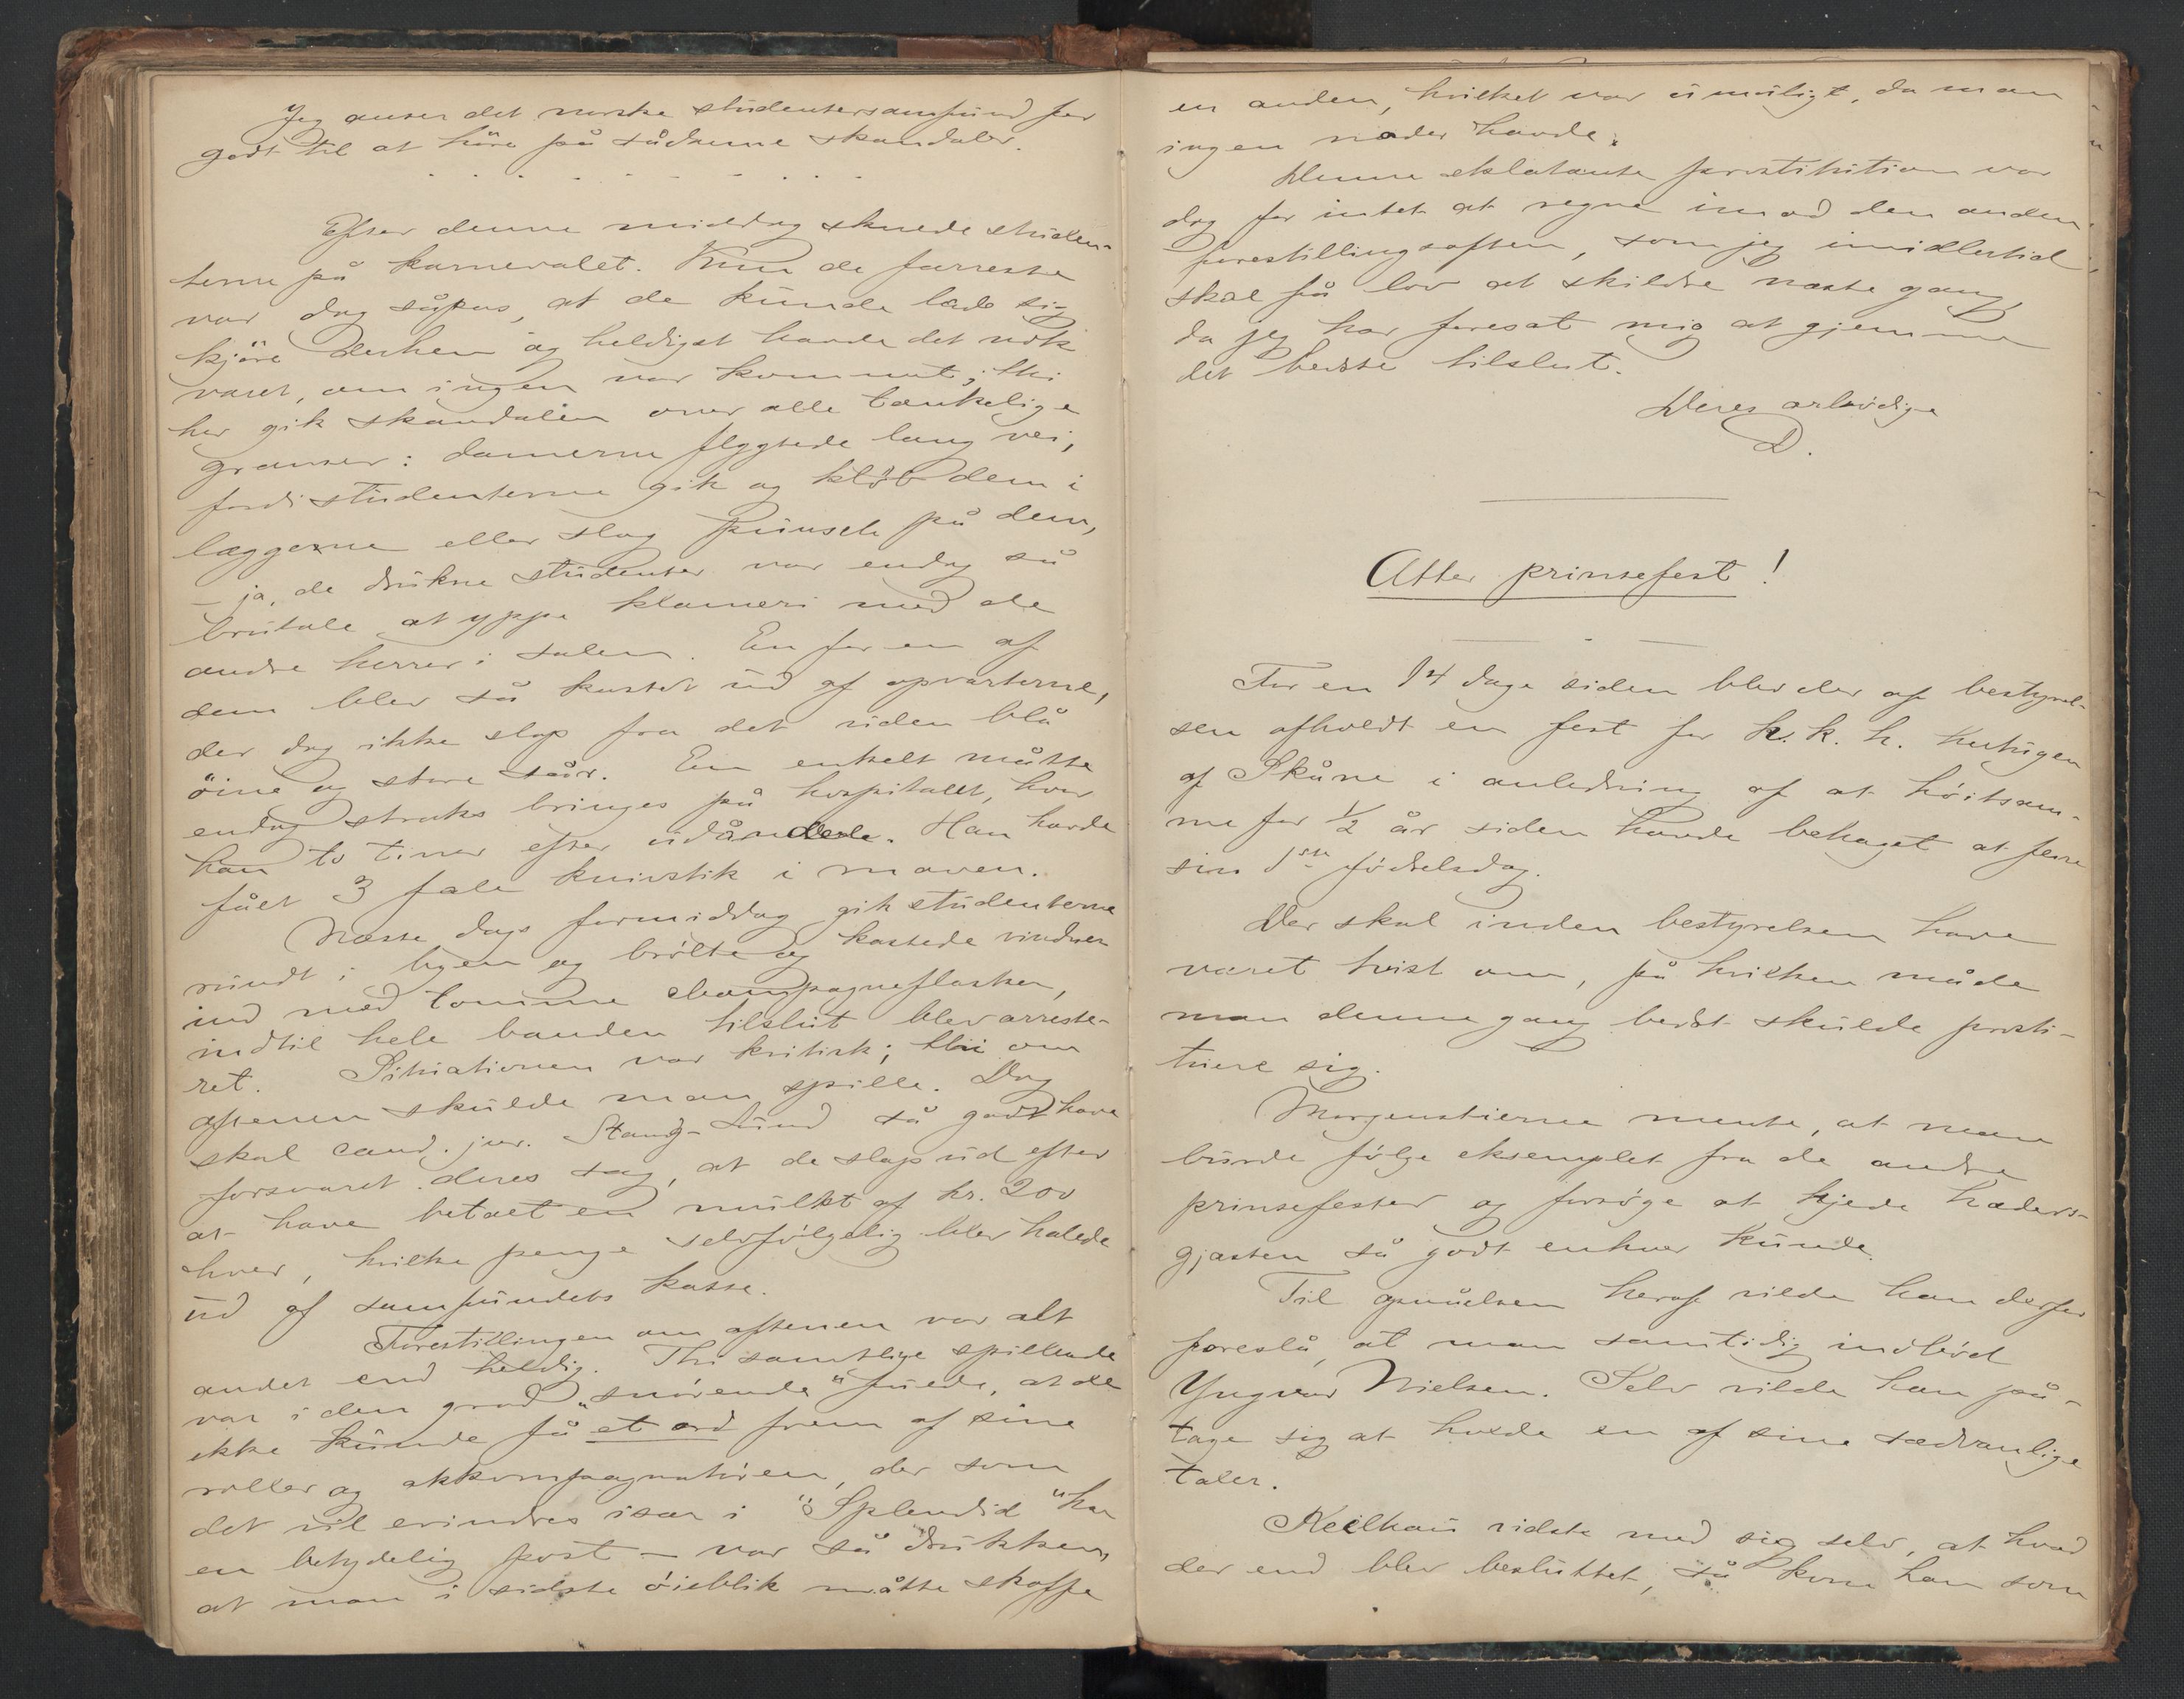 Jeg anser det norske studentersamfund for
godt til at høre på sådanne skandaler.
. . . . . . . . .
Efter denne middag skuede studen-
terne på karnevalet. Kun de færreste
var dog såpas, at de kunde lade sig
kjøre derhen og heldigst havde det nok
været, om ingen var kommet; thi
her gik skandalen over alle tænkelige
grænser: damerne flygtede lang vei,
fordi studenterne gik og kløb dem i
læggerne eller slog punsch på dem,
– ja, de drukne studenter var endog så
brutale at yppe klammeri med de
andre herrer i salen. En for en af
dem blev så kastet ud af opvarterne,
der dog ikke slap fra det uden blå
øine og store sår. En enkelt måtte
endog straks bringes på hospitalet, hvor
han to timer efter udåndede. Han havde
fået 3 fæle knivstik i maven.
Næste dags formiddag gik studenterne
rundt i byen og brølte og kastede vinduer
ind med tomme champagneflasker,
indtil hele banden tilslut blev arreste-
ret. Situationen var kritisk; thi om
aftenen skulde man spille. Dog
skal cand. jur. Stang-Lund så godt have
forsvaret deres sag, at de slap ud efter
at have betalt en mulkt af kr. 200
hver, hvilke penge selvfølgelig blev halede
ud af samfundets kasse.
Forestillingen om aftenen var alt
andet end heldig. Thi samtlige spillende
var i den grad „snørende“ fulde, at de
ikke kunde få et ord frem af sine
roller og akkompagnatøren, der som
det vil erindres især i „Splendid“ har
en betydelig post – var så drukken,
at man i sidste øieblik måtte skaffe
en anden, hvilket var umuligt, da man
ingen noder havde.
Denne eklatante prostitution var
dog for intet at regne imod den anden
forestillingsaften, som jeg imidlertid
skal få lov at skildre næste gang,
da jeg har foresat mig at gjemme
det bedste tilslut.
Deres ærbødige
D.
Atter prinsefest!
For en 14 dage siden blev der af bestyrel-
sen afholdt en fest for h. k. h. hertugen
af Skåne i anledning af at høitsam-
me for 1/2 år siden havde behaget at feire
sin 1ste fødselsdag.
Der skal inden bestyrelsen have
været tvist om, på hvilken måde
man denne gang bedst skulde prosti-
tuere sig.
Morgenstierne mente, at man
burde følge eksemplet fra de andre
prinsefester og forsøge at kjede hæders-
gjæsten så godt enhver kunde.
Til opnåelsen heraf vilde han derfor
foreslå, at man samtidig indbød
Yngvar Nielsen. Selv vilde han på-
tage sig at holde en af sine sædvanlige
taler.
Keilhau vidste med sig selv, at hvad
der end blev besluttet, så kom han som